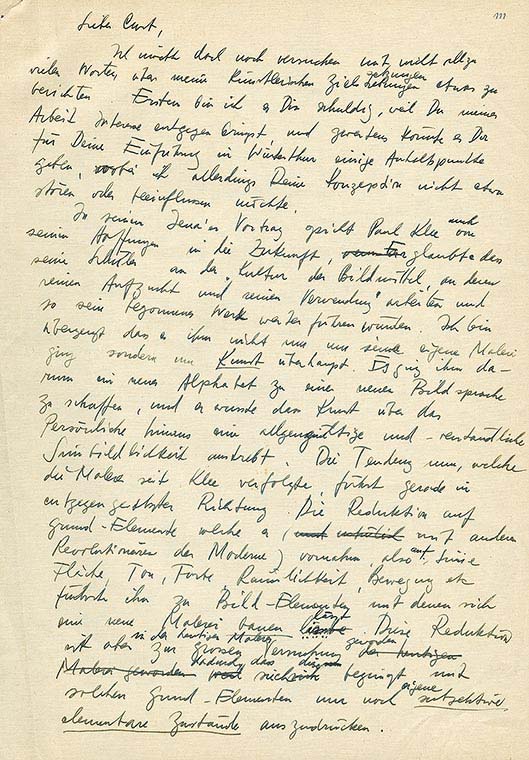 111
Lieber Curt,
Ich möchte doch noch versuchen mit nicht allzu
vielen Worten über meine Künstlerischen Zielsetzungen etwas zu
berichten Erstens bin ich es Dir schuldig, weil Du meiner
Arbeit Interesse entgegen bringst und zweitens könnte es Dir
für Deine Einführung in Winterthur einige Anhaltspunkte
geben, wobei ich allerdings Deine Konzeption nicht etwa
stören oder beeinflussen möchte.
In seinem Jena'er Vortrag spricht Paul Klee von
seinen Hoffnungen in die Zukunft, Er glaubte das
seine Schüler an der "Kultur der Bildmittel, an deren
reinen Aufzucht und reinen Verwendung" arbeiten und
so sein begonnenes Werk weiter führen würden. Ich bin
überzeugt das es ihm nicht nur um seine eigene Malerei
ging sondern um Kunst überhaupt. Es ging ihm da-
rum ein neues Alphabet zu einer neuen Bildsprache
zu schaffen, und er wusste dass Kunst über das
Persönliche hinaus eine allgemgültige und - verständliche
Sinnbildlichkeit anstrebt. Die Tendenz nun, welche
die Malerei seit Klee verfolgte, führt gerade in
entgegengesetzter Richtung. Die Reduktion auf
grund-Elemente welche er, (mit anderen
Revolutionären der Moderne) vornahm, also auf, Linie
Fläche, Ton, Farbe, Räumlichkeit, Bewegung etc
führte ihn zu Bild-Elementen mit denen sich
eine neue Malerei bauen lässt. Diese Reduktion
ist aber in der heutigen Malerei zur grossen Versuchung geworden
dadurch das sich begnügt mit
solchen Grund-Elementen nur noch eigene subjektive,
elementare Zustände auszudrücken.